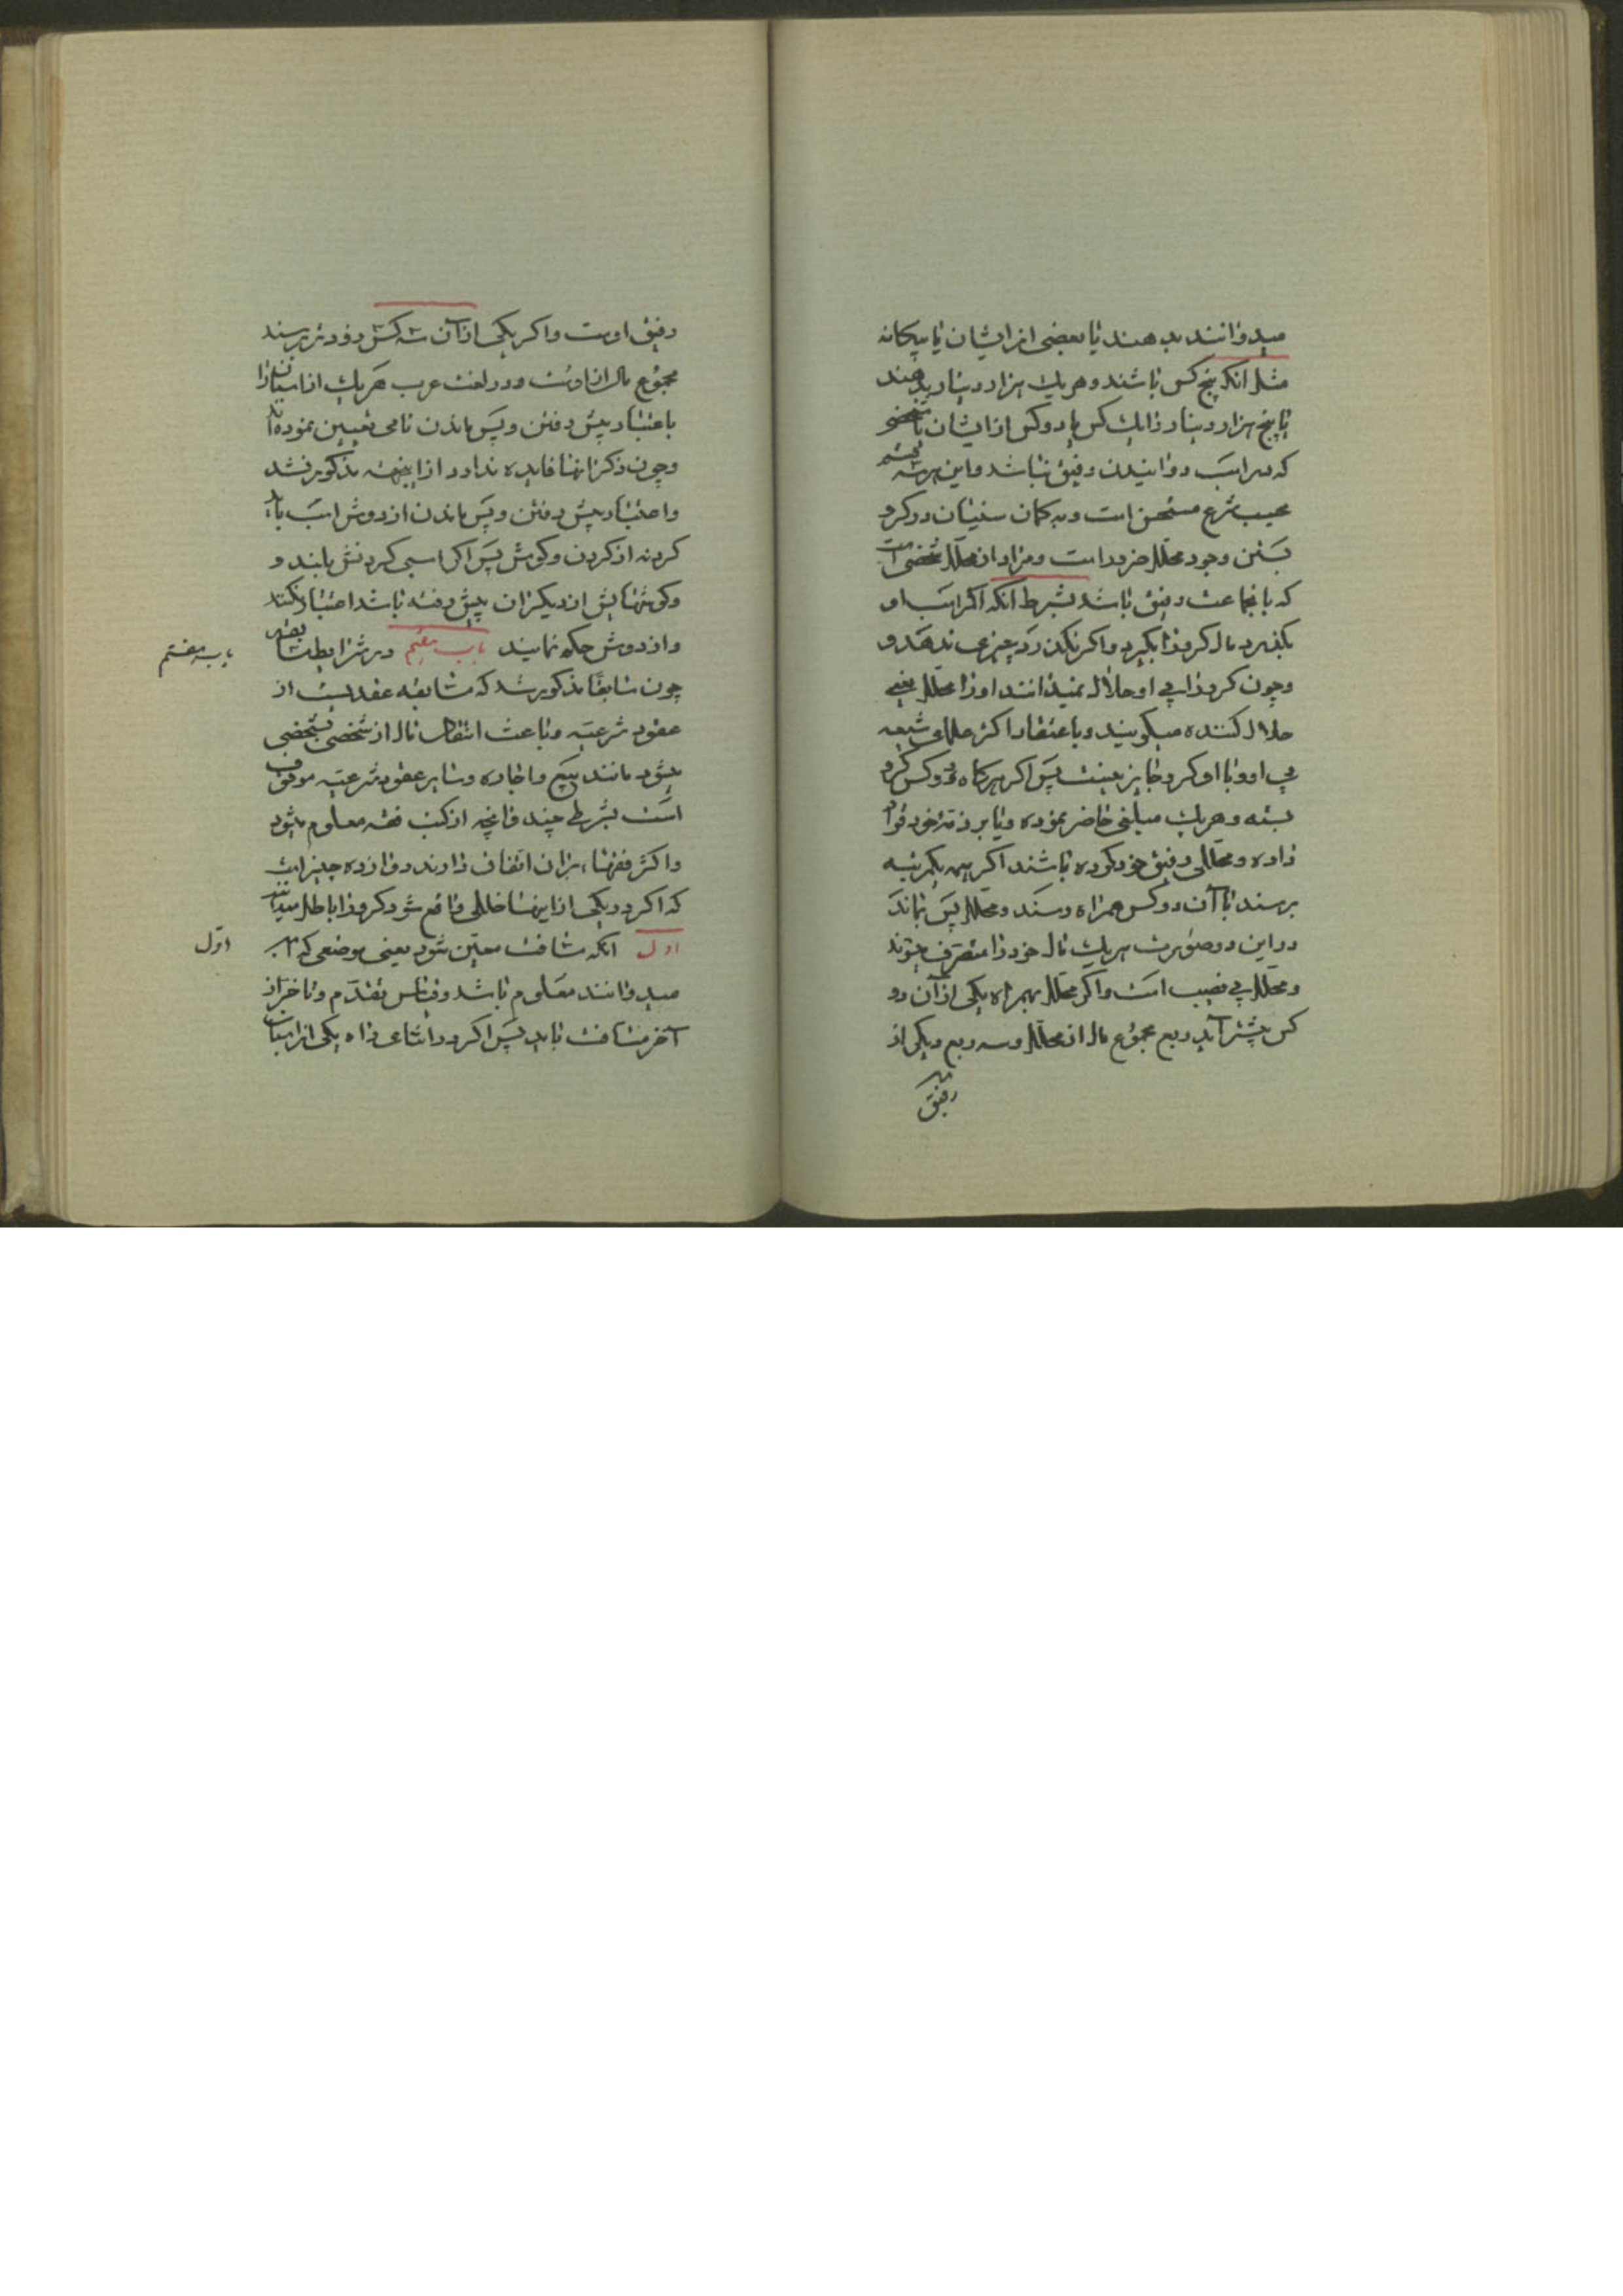 میدوانند بدهند یا بعضی از ایشان یا بیگانه
مثل آنکه پنج کس باشند و هر یک هزار دینار بدهند
یا پنج هزار دینار را یک کس یا دو کس از ایشان یا شخصی
که در اسب دوانیدن رفیق نباشد و این هر سه قسم
بحسب شرع مستحسن است و به کمان سنیان در کرو
بستن وجود محلل ضرور است و مراد از محلل شخصی است
که با نجماعت رفیق باشد بشرط آنکه اگر اسب او
بگذرد مال کرو را بگیرد و اگر نگذرد چیزی ندهد و
و چون کرو را بی او حلال نمیدانند او را محلل یعنی
حلال کننده میگویند و باعتقاد اکثر علمای شیعه
بی او و با او کرو جایز نیست پس اگر هرگاه دو کس کرو
بسته و هر یک مبلغی حاضر نموده و یا بر ذمه خود قرار
داده و محللی رفیق خود کرده باشند اگر همه بیکمرتبه
برسند یا آن دو کس همراه رسند و محلل پس بماند
در این دو صورت هر یک مال خود را متصرف میشوند
و محلل بی نصیب است و اگر محلل بهمراه یکی از آن دو
کس پیشتر آید ربع مجموع مال از محلل و سه ربع دیگر از
رفیق
رفیق اوست و اگر یکی از آن سه کس زودتر برسند
مجموع مال از اوست و در لغت عرب هر یک از اسبان را
باعتبار پیش رفتن و پس ماندن نامی تعیین نموده اند
و چون ذکر انها فایده ندارد از اینجهه مذکور نشد
و اعتبار پیش رفتن و پس ماندن از دوش اسب باید
کردنه از کردن و کوش پس اگر اسبی کردنش بلند و
و کوشهایش از دیگران پیش رفته باشد اعتبار نکنند
و از دوش حکم نمایند باب هفتم در شرایط مسابقه
باب هفتم
چون سابقا مذکور شد که مسابقه عقدیست از
عقود شرعیه و باعث انتقال مال از شخصی بشخصی
میشود مانند بیع و اجاره و سایر عقود شرعیه موقوف
است بشرطی چند چنانچه از کتب فقه معلوم میشود
و اکثر فقهاء بران اتفاق دارند دوازده چیز است
که اگر در یکی از اینها خللی واقع شود کرو را باطل میدانند
اول آنکه مسافت معین شود یعنی موضعی که اسب
اول
میدوانند معلوم باشد و قیاس تقدم و تاخر از
آخر مسافت باید پس اگر در اثنای راه یکی از اسبان